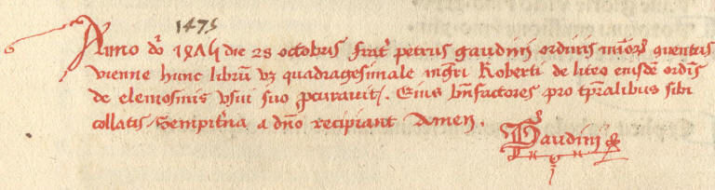 1475
Anno do 1475 die 28 octobris frat' petrus gaudini ordinis mior' quentus
vienne hunc libru vz quadragesimale mgri Roberti de liteo eiusde ordis
de elemosinis usui suo pcuravit. Eius bnfactores pro tpralibus sibi
collatis Sempitna a dno recipiant Amen.
Gaudini